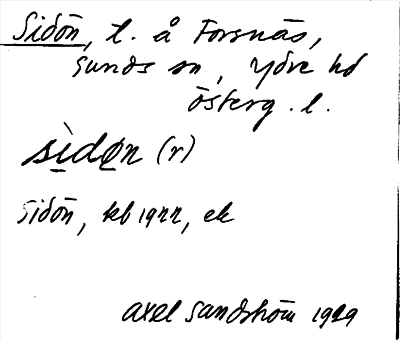 Sidön, t. å Forsnäs,
Sunds sn, Ydre hd
Österg. l.
sìdøn (r)
Sidön, kb 1922, ek
Axel Sandström 1929